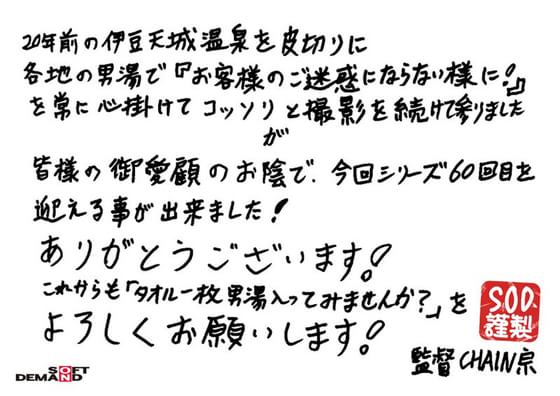 20年前の伊豆天城温泉を皮切りに
各地の男湯で『お客様のご迷惑にならない様に!』
を常に心掛けてコッソリと撮影を続けて参りました
が
皆様の御愛顧のお陰で、今回シリーズ60回目を
迎える事が出来ました!
ありがとうございます!
これからも「タオル一枚男湯入ってみませんか?」を
よろしくお願いします!
S.O.D.
謹製
監督 CHAIN宗
SOFT
DEMAND